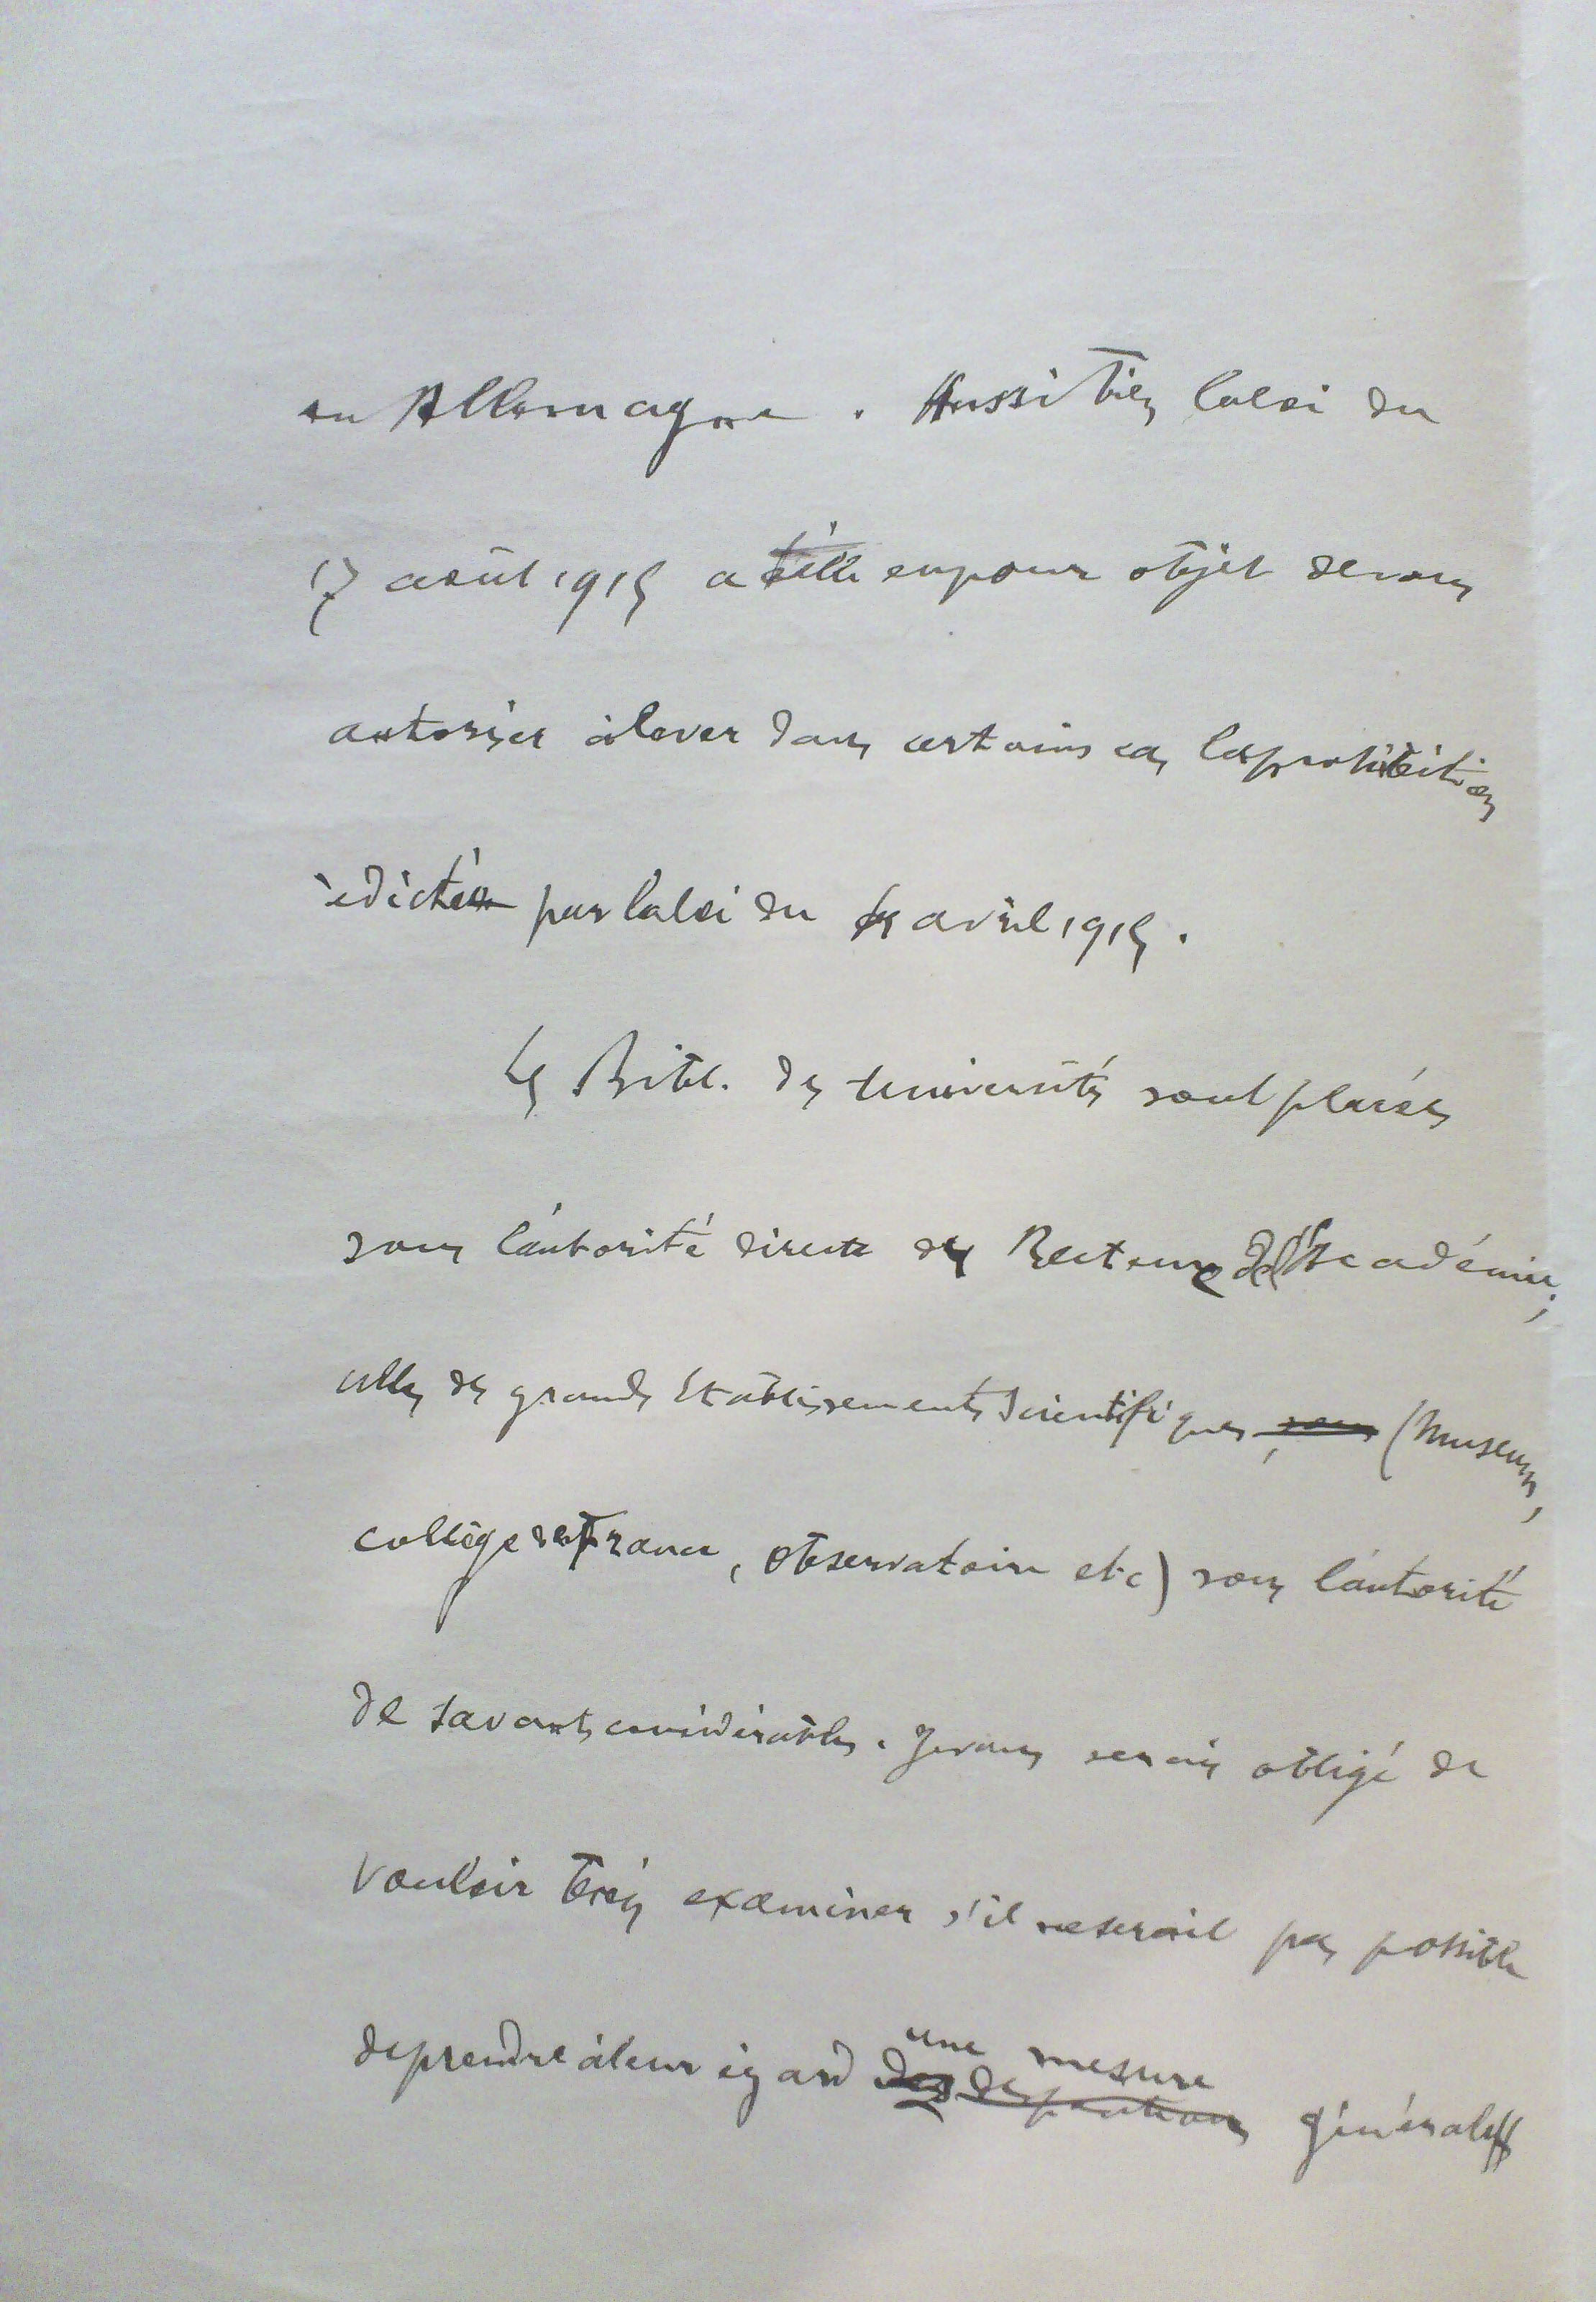 en Allemagne. Aussi bien la loi du
17 août 1915 a t'elle eu pour objet de vous
autoriser à lever dans certains cas la prohibition
édictée par la loi du 4 avril 1915.
Les Bibl. des Universités sont placées
sous l'autorité directe du Recteur de l'Académie;
celles des grands Etablissements Scientifiques, sous (Museum,
collège de France, Observatoire etc) sous l'autorité
de savants considérables. Je vous serais obligé de
vouloir bien examiner s'il ne serait pas possible
une mesure
de prendre à leur égard des générale